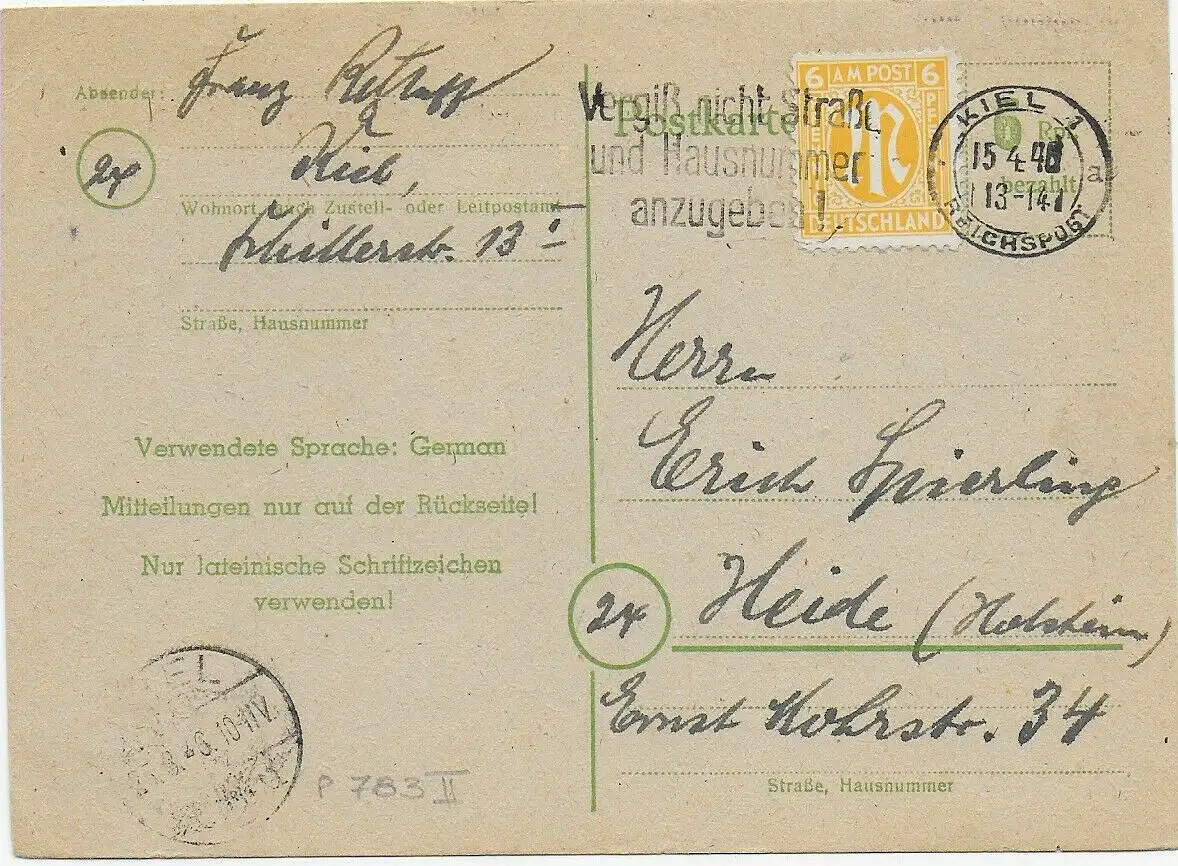 Absender: Franz
24
Kiel,
Wohnort, auch Zustell- oder Leitpostamt
Schillerstr. 13 I
Straße, Hausnummer
Verwendete Sprache: German
Mitteilungen nur auf der Rückseite!
Nur lateinische Schriftzeichen
verwenden!
KIEL
10-11V.
P 783 II
Postkarte
Vergiß nicht Straße
und Hausnummer
anzugeben!
6 AM POST 6
DEUTSCHLAND
KIEL 1
15.4.46
13-14
a
REICHSPOST
Rpf
bezahlt
Herrn
Erich Spierling
24 Heide (Holstein)
Ernst Mohrstr. 34
Straße, Hausnummer